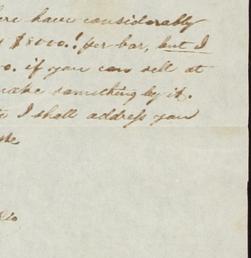 here have considerably
$8000.! per bar, but I
o. if you can sell at
make something by it.
I shall address you